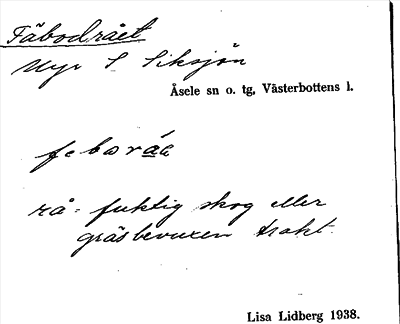 Fäbodrået
Myr S Siksjön
Åsele sn o. tg, Västerbottens l.
feboråe
rå = fuktig skog eller
gräsbevuxen trakt.
Lisa Lidberg 1938.